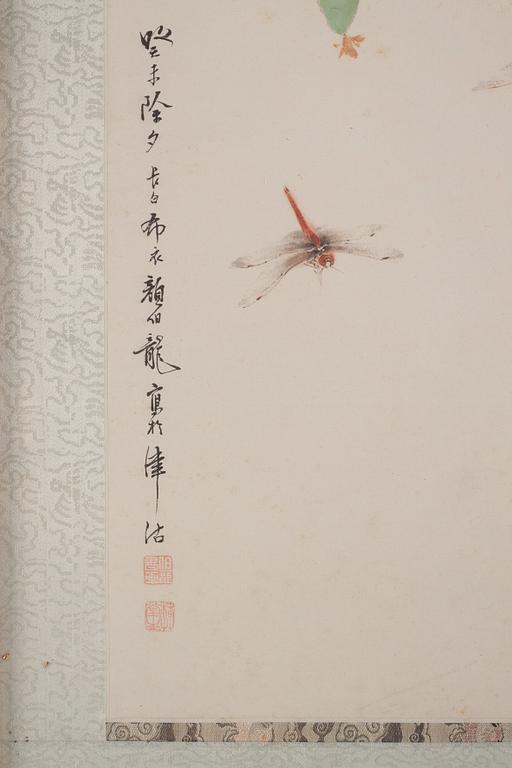 癸未除夕長白布衣顏伯龍寫於津沽